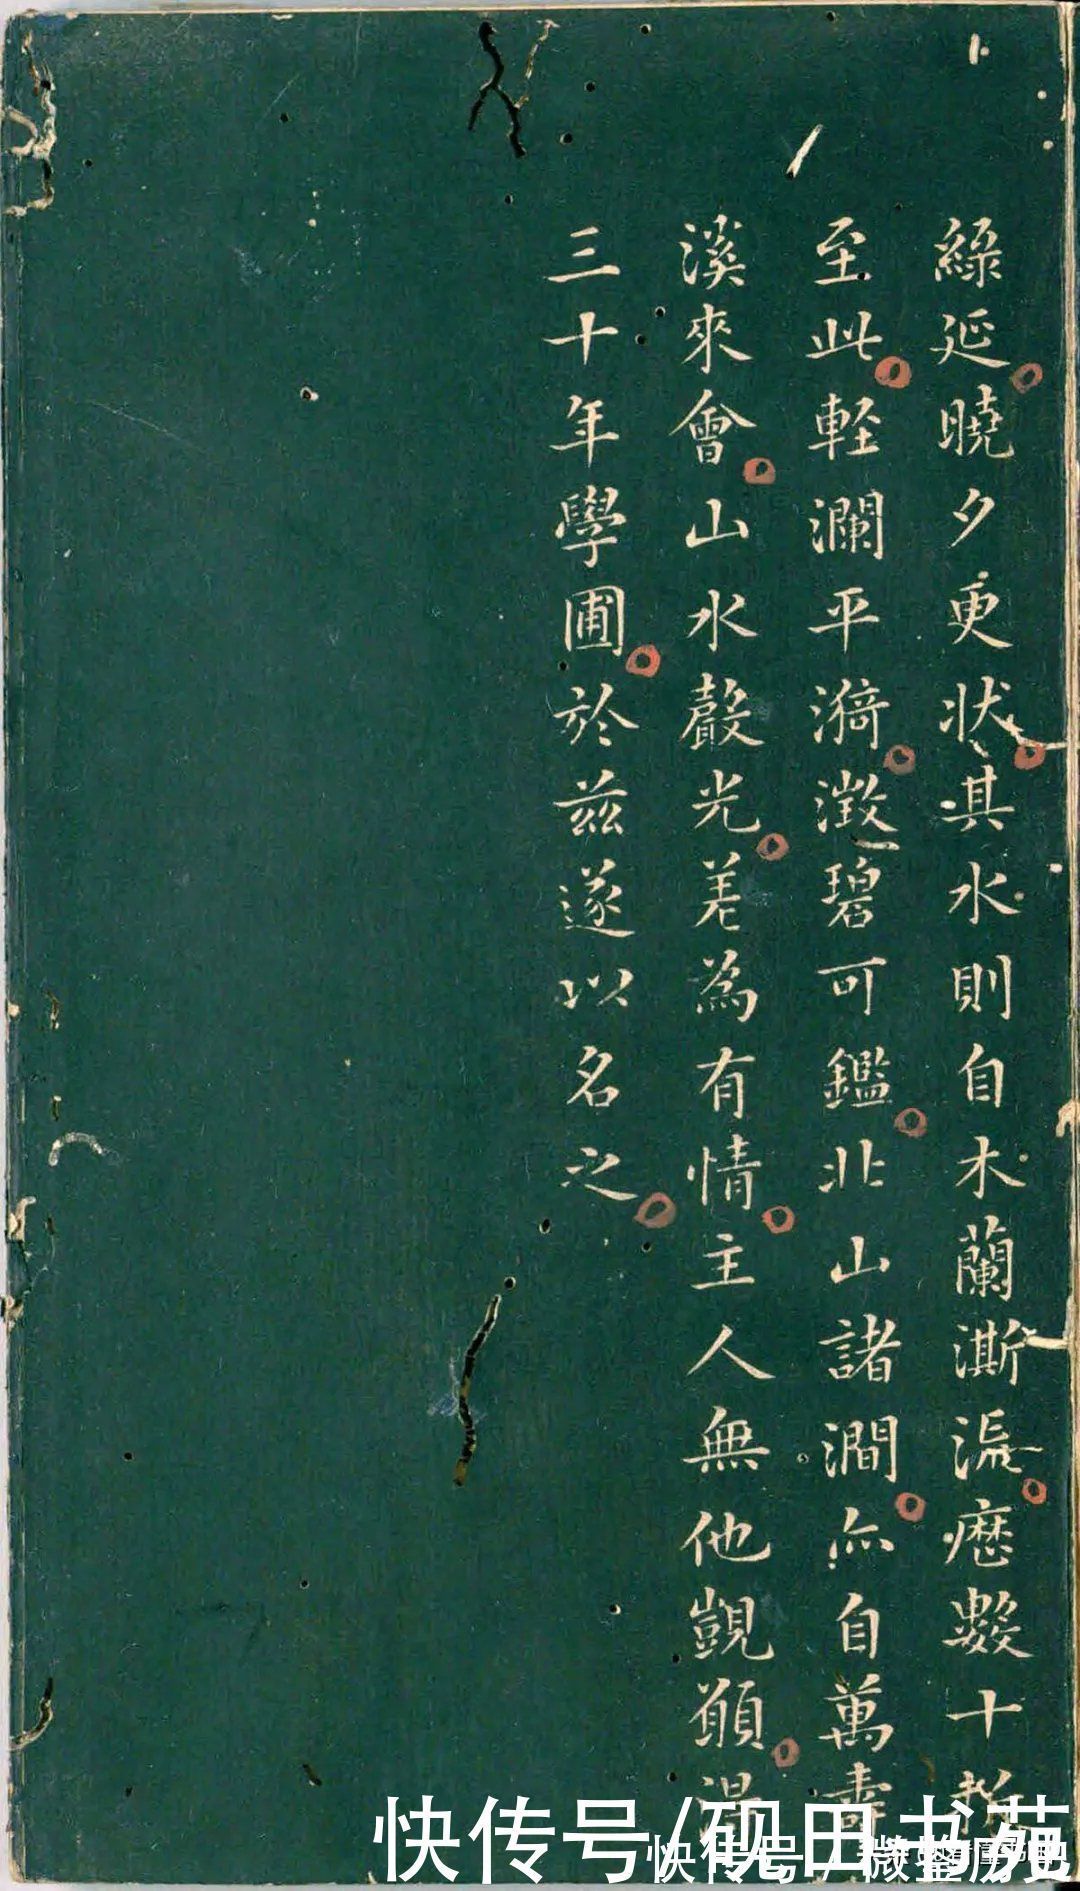 綠延曉夕更状其水則自木蘭澌流歷數十
至此軽瀾平漪澂碧可鑑北山諸澗亦自萬壽
溪來會山水聲光差為有情主人無他覬願
三十年學圃於兹遂以名之
快传号/砚田书苑
快传号